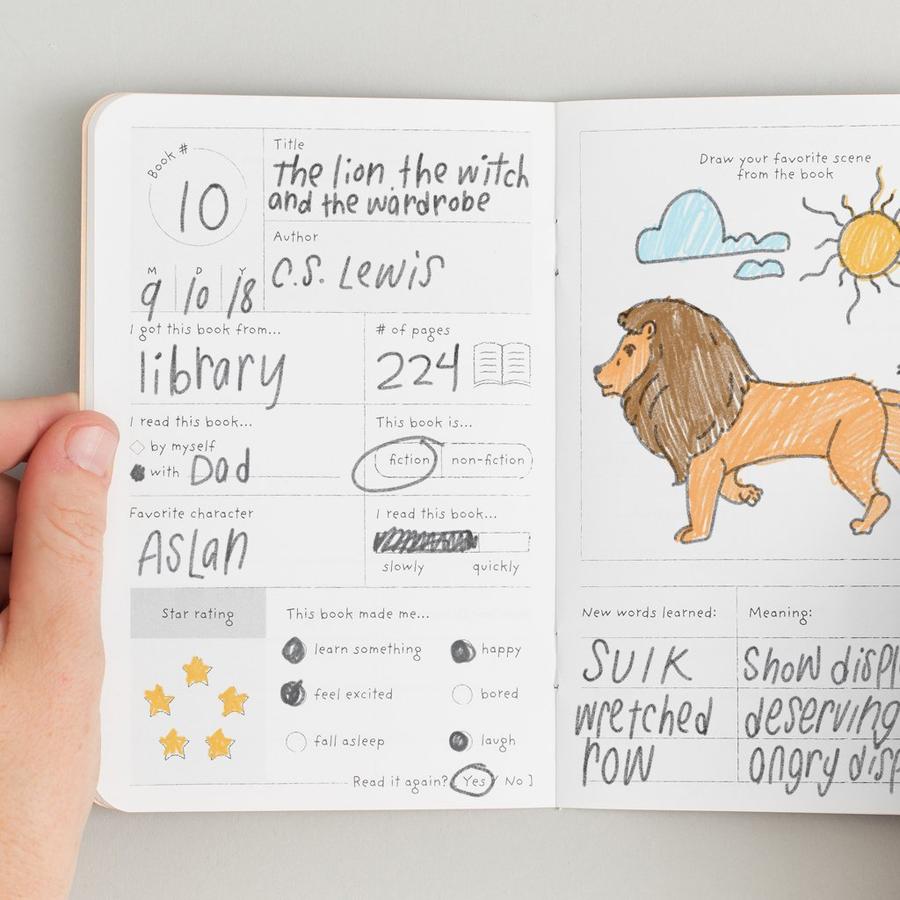 Book #
10
Title
the lion the witch
and the wardrobe
Author
C.S. Lewis
M D Y
9 10 18
I got this book from...
library
# of pages
224
I read this book...
by myself
with Dad
This book is...
fiction non-fiction
Favorite character
Aslan
I read this book...
slowly quickly
Star rating
This book made me...
learn something happy
feel excited bored
fall asleep laugh
Read it again? Yes / No ]
Draw your favorite scene
from the book
New words learned: Meaning:
Sulk Show
wretched deserving
row angry